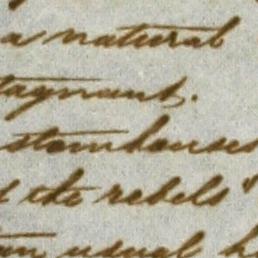 a natural
tagnant.
stomhouses
the rebels"
usual